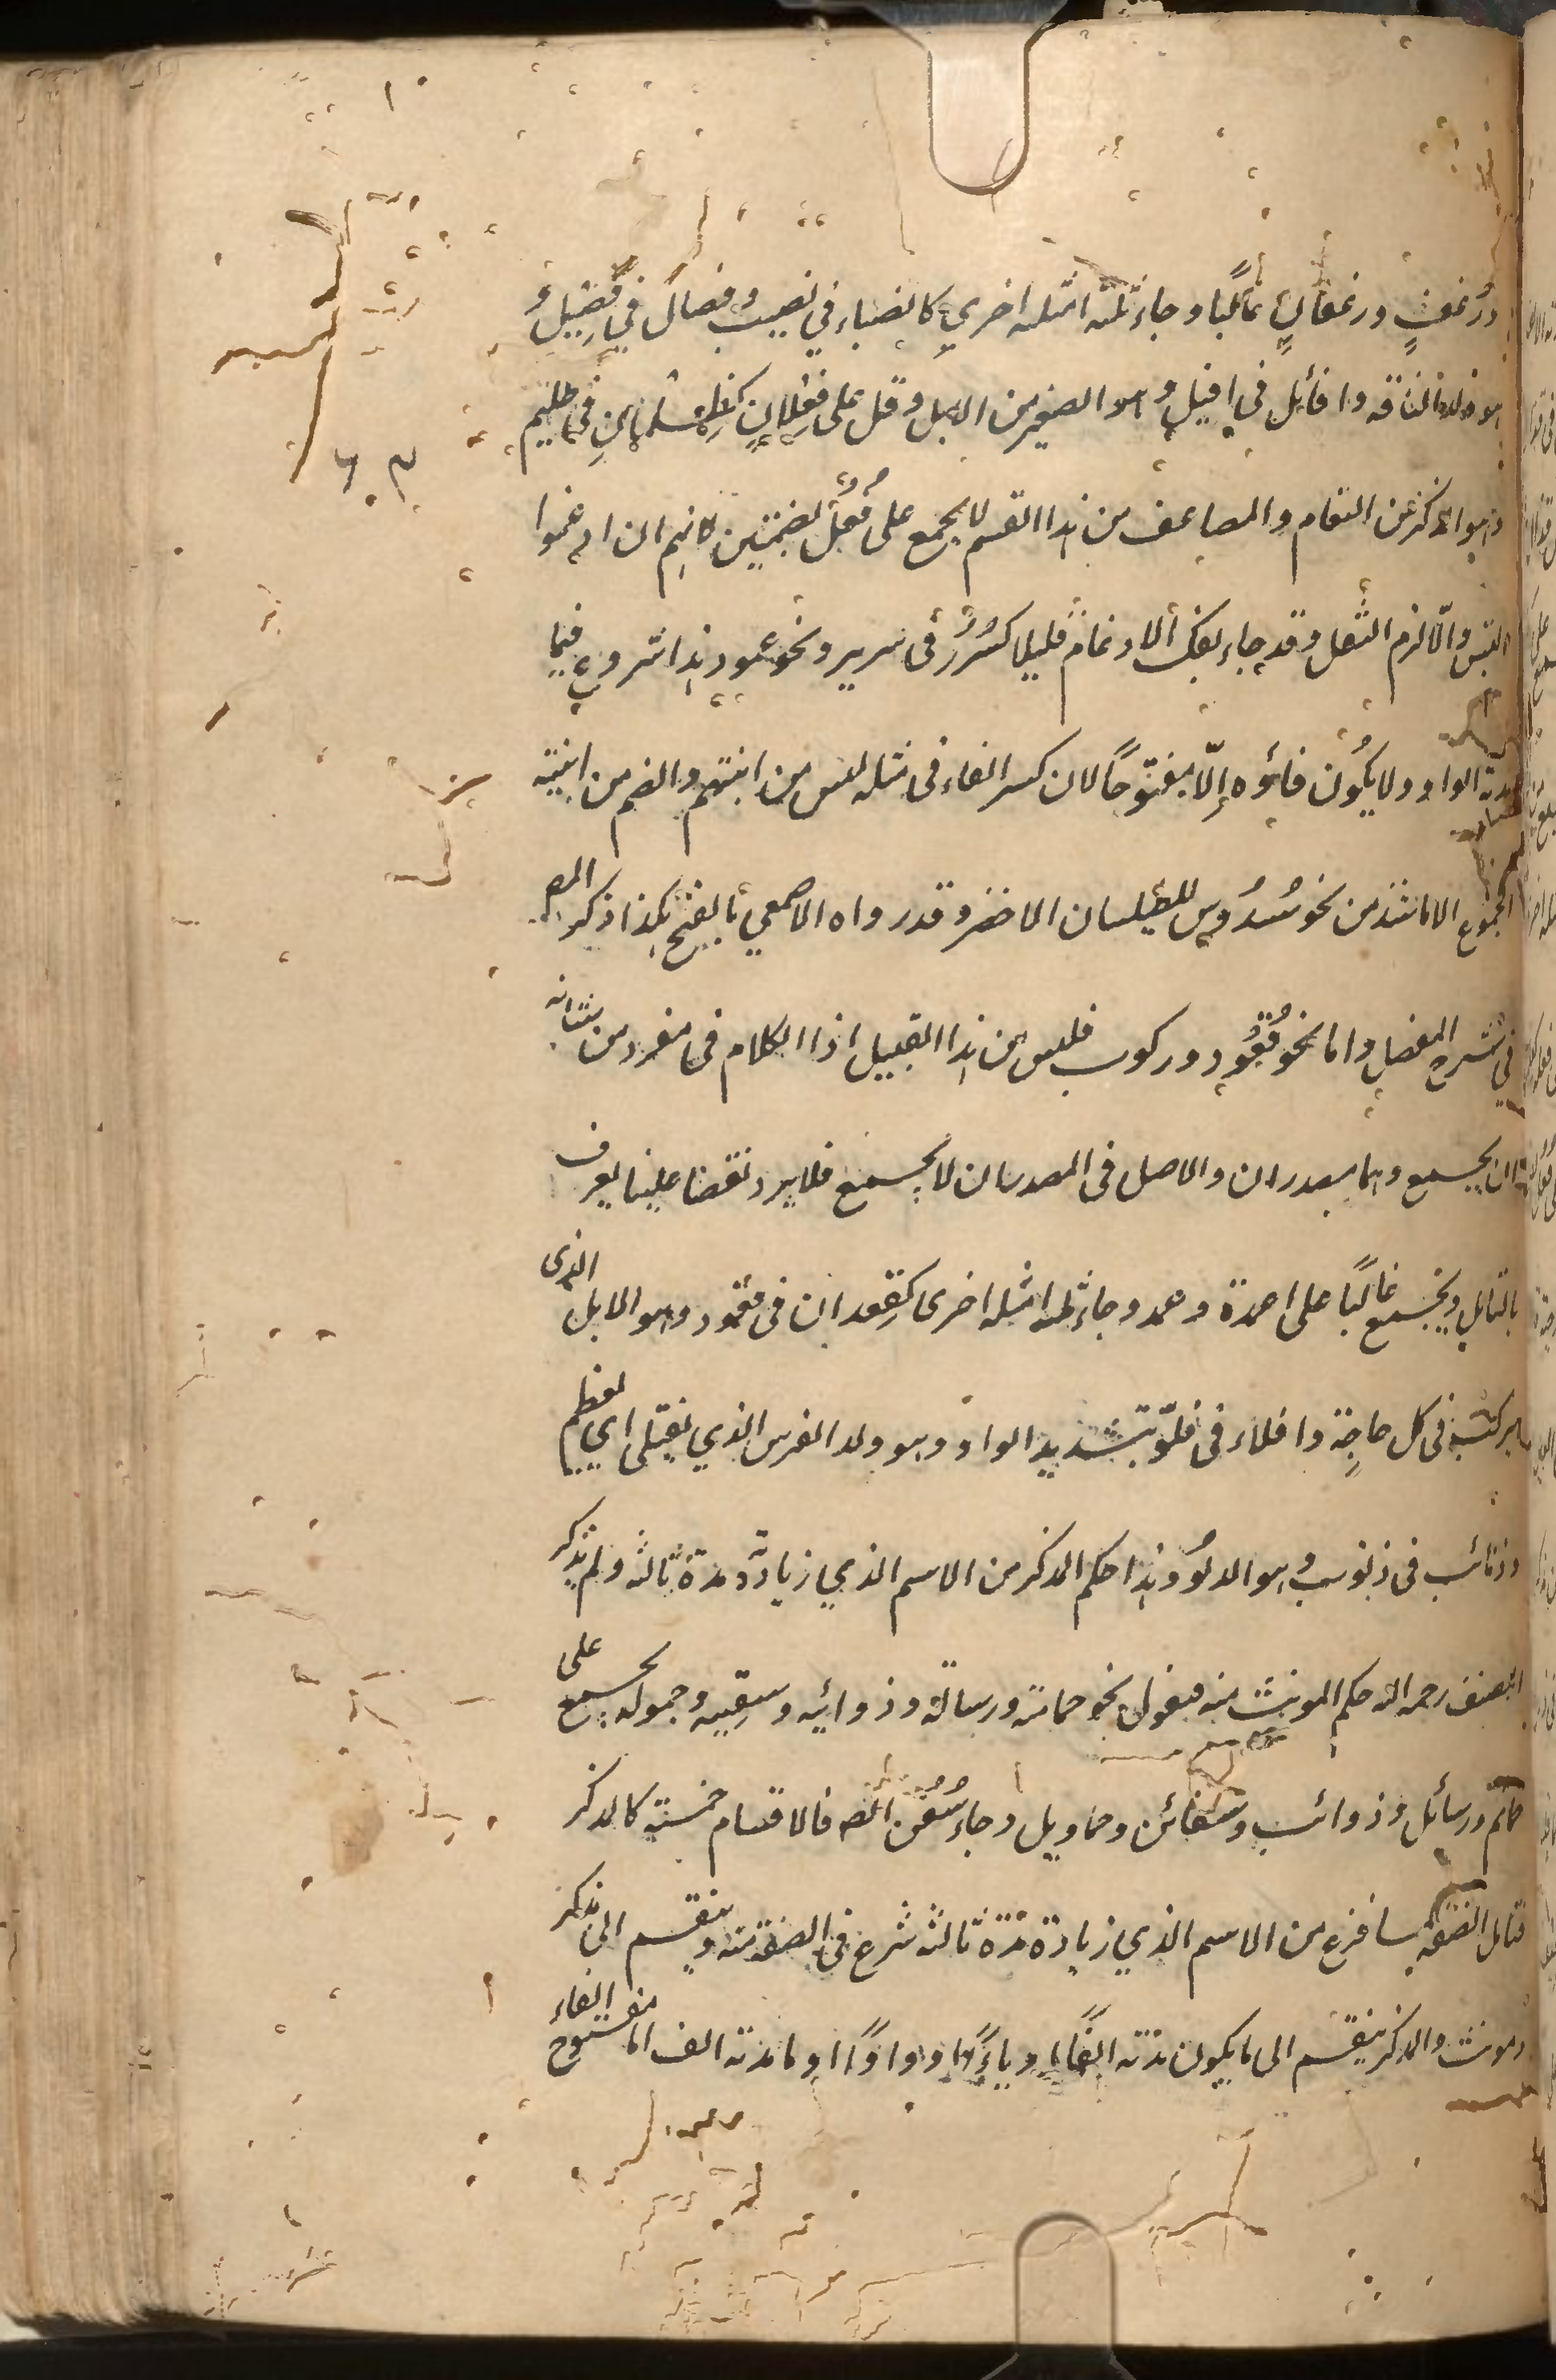 ورُغفٍ ورغفانٍ غالبًا وجاء ثلثة امثلة اخرى كانصباء في نصيب وفصال في فصيل و
هو ولد الناقة وافائل في افيل وهو الصغير من الابل وقل على فِعلانٍ كظِلمانٍ في ظليم
وهو الذكر عن النعام والمضاعف من هذا القسم لا يجمع على فُعُل بضمتين لانهم ان ادغموا
التبس والّا لزم الثقل وقد جاء بفك الادغام قليلا كسُرُر في سرير ونحو عمود هذا شروع فيما
مدته الواو ولا يكُون فاؤه إلّا مفتوحًا لان كسر الفاء في مثله ليس من ابنيتهم والضم من ابنية
الجموع الا ما شذ من نحو سُدُوس للطيلسان الاخضر وقد رواه الاصمعي بالفتح هكذا ذكر المص
في شرح المفصل واما نحو قُعُود وركوب فليس من هذا القبيل اذا الكلام في مفرد من شانه
ان يجمع وهما مصدران والاصل في المصدر ان لا يجمع فلا يرد نقضا علينا يعرف
بالتامل ويجمع غالبًا على اعمدة وعمد وجاء ثلثة امثلة اخرى كقِعدان في قعود وهو الابل الذى
يركب في كل حاجة وافلاء في فلوّ بتشديد الواو وهو ولد الفرس الذي يفتلى اي يفطم
وذنائب في ذنوب وهو الدلو وهذا حكم المذكر من الاسم الذي زيادته مدة ثالثة ولم يذكر
المصنف رحمه الله حكم المونث منه فنقول نحو حمامة ورسالة وذوابة وسفينة وحمولة يجمع على
حمائم ورسائل وذوائب وسفائن وحماويل وجاء سُفُن ايضا فالاقسام خمسة كالمذكر
قال الصفة لما فرغ من الاسم الذي زيادة مدة ثالثة شرع في الصفة منه وينقسم الى مذكر
ومونث والمذكر ينقسم الى ما يكون مدته الفًا وياءً وواوًا وما مدته الف اما مفتوح الفاء